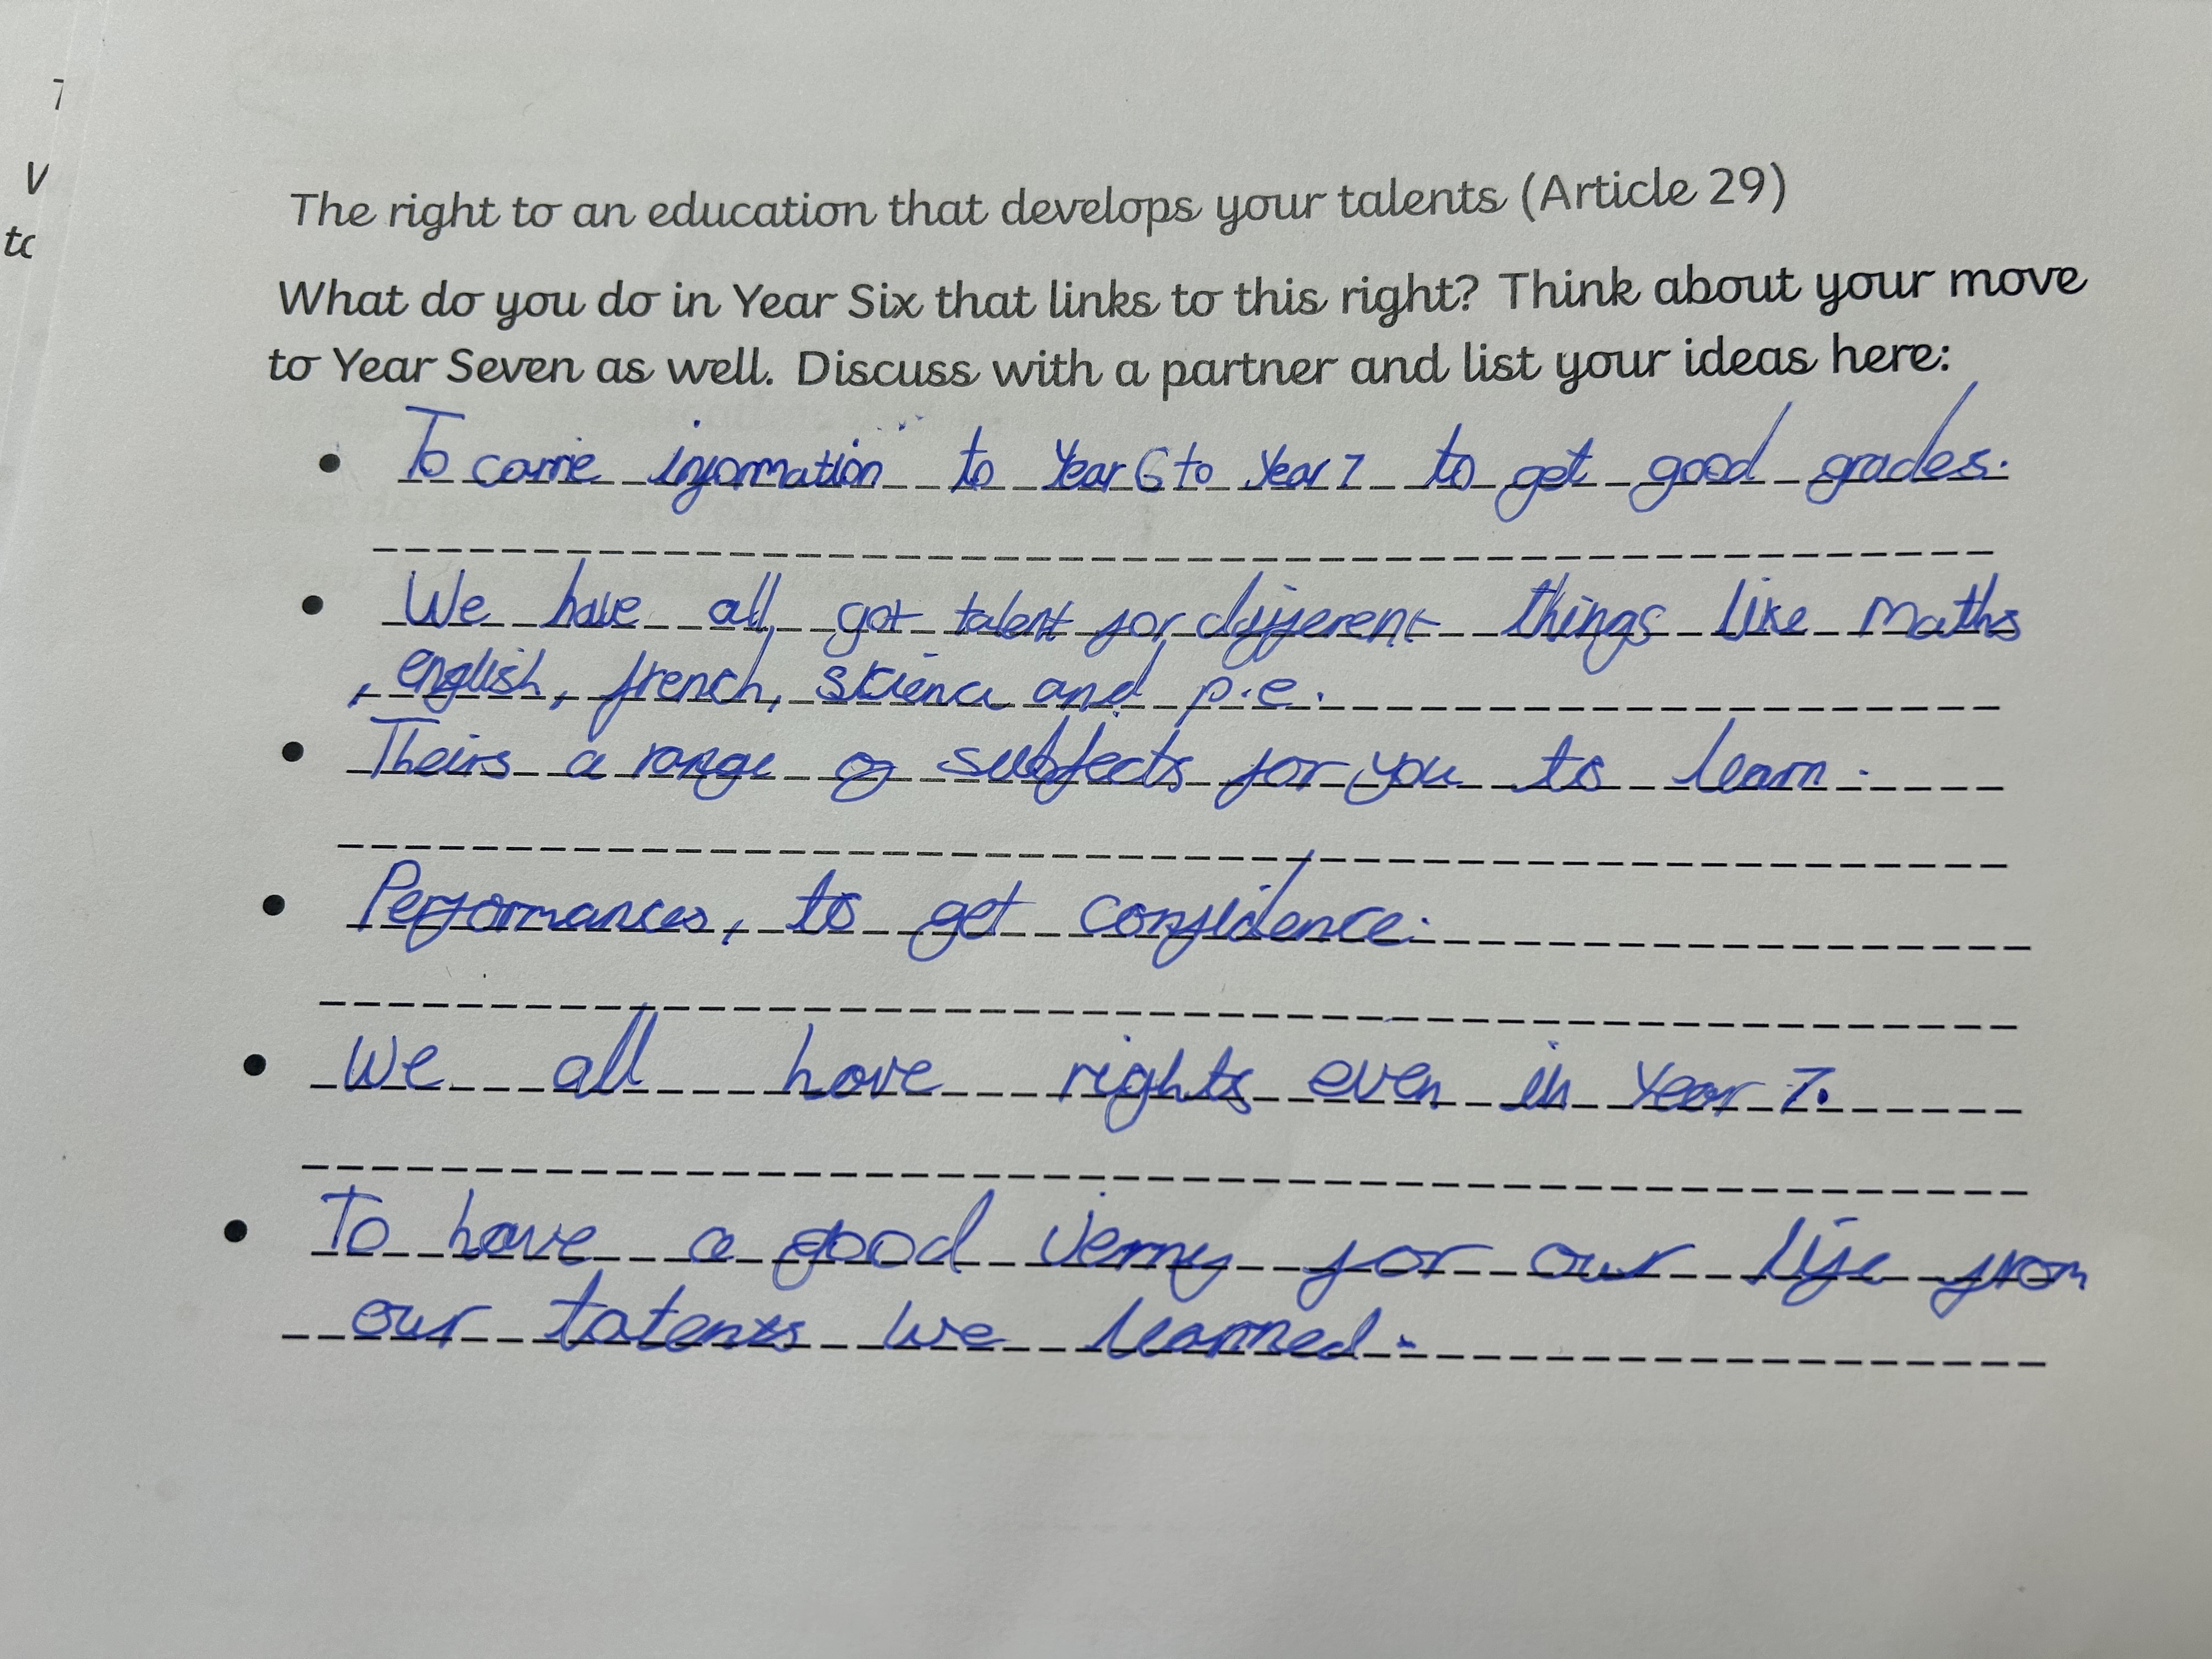 The right to an education that develops your talents (Article 29)
What do you do in Year Six that links to this right? Think about your move
to Year Seven as well. Discuss with a partner and list your ideas here:
• To carrie information to Year 6 to Year 7 to get good grades.
• We have all got talent for different things like Maths
, english, french, science and p.e.
• Theirs a range of subjects for you to learn.
• Performances, to get confidence.
• We all have rights even in Year 7.
• To have a good jerny for our life from
our talents we learned.